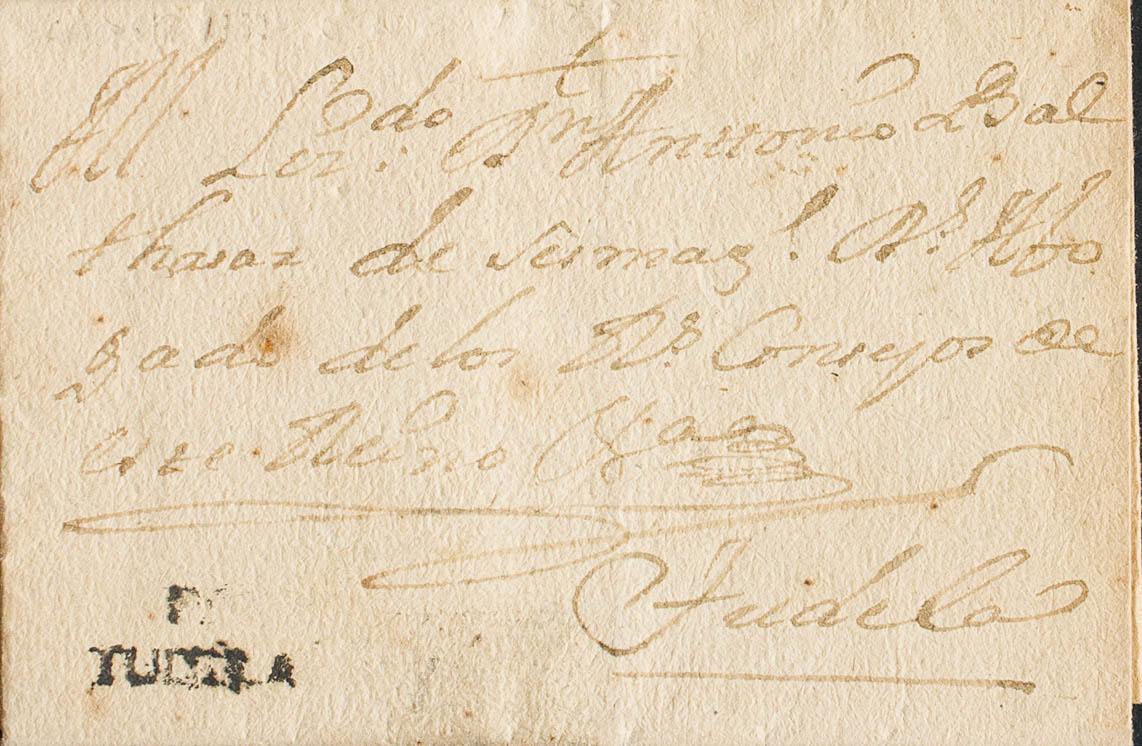 Al Lcz.do Dn Antonio Bal
thasar de Sesma g.l R.l Abo
gado de los R.s Consejos de
este Reino &a
Tudela
DE
TUDELA